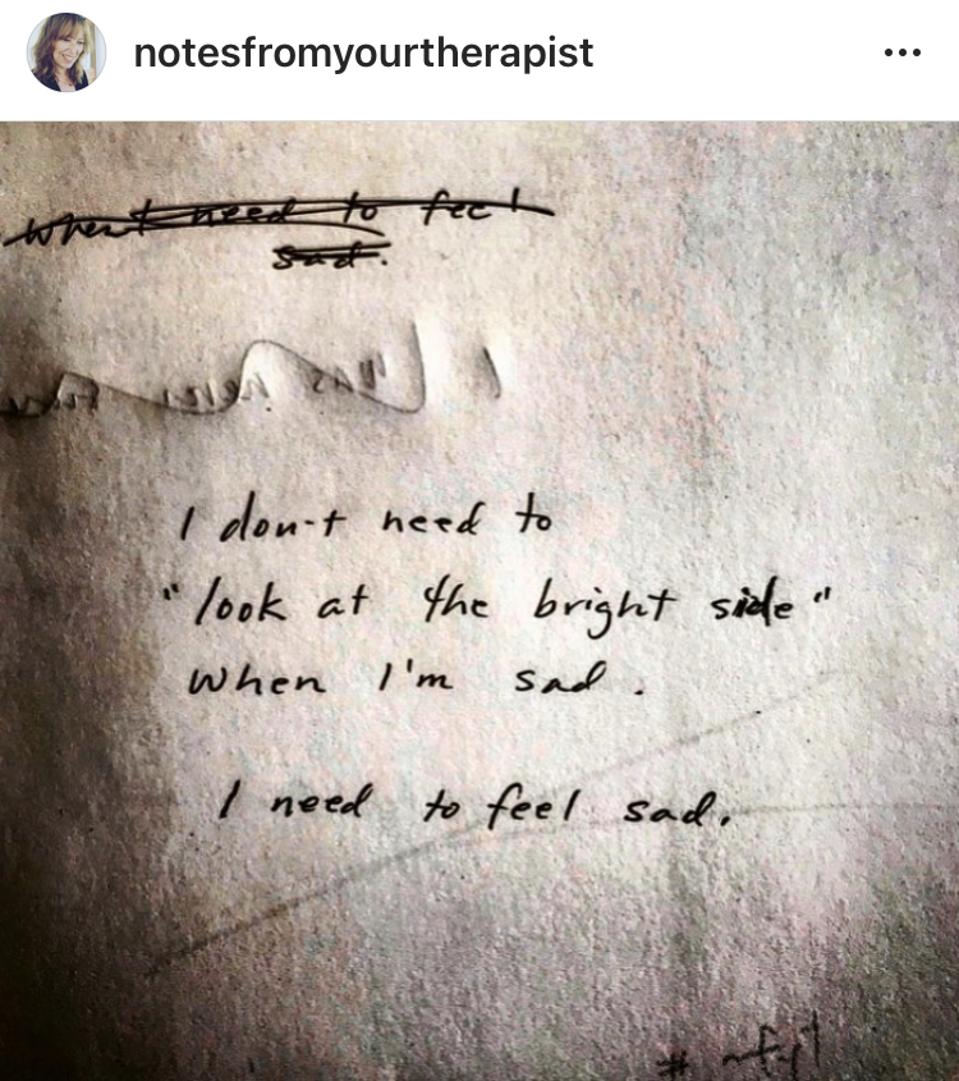 notesfromyourtherapist
need to feel
sad.
I don't need to
"look at the bright side"
when I'm sad.
I need to feel sad.
# nfyt